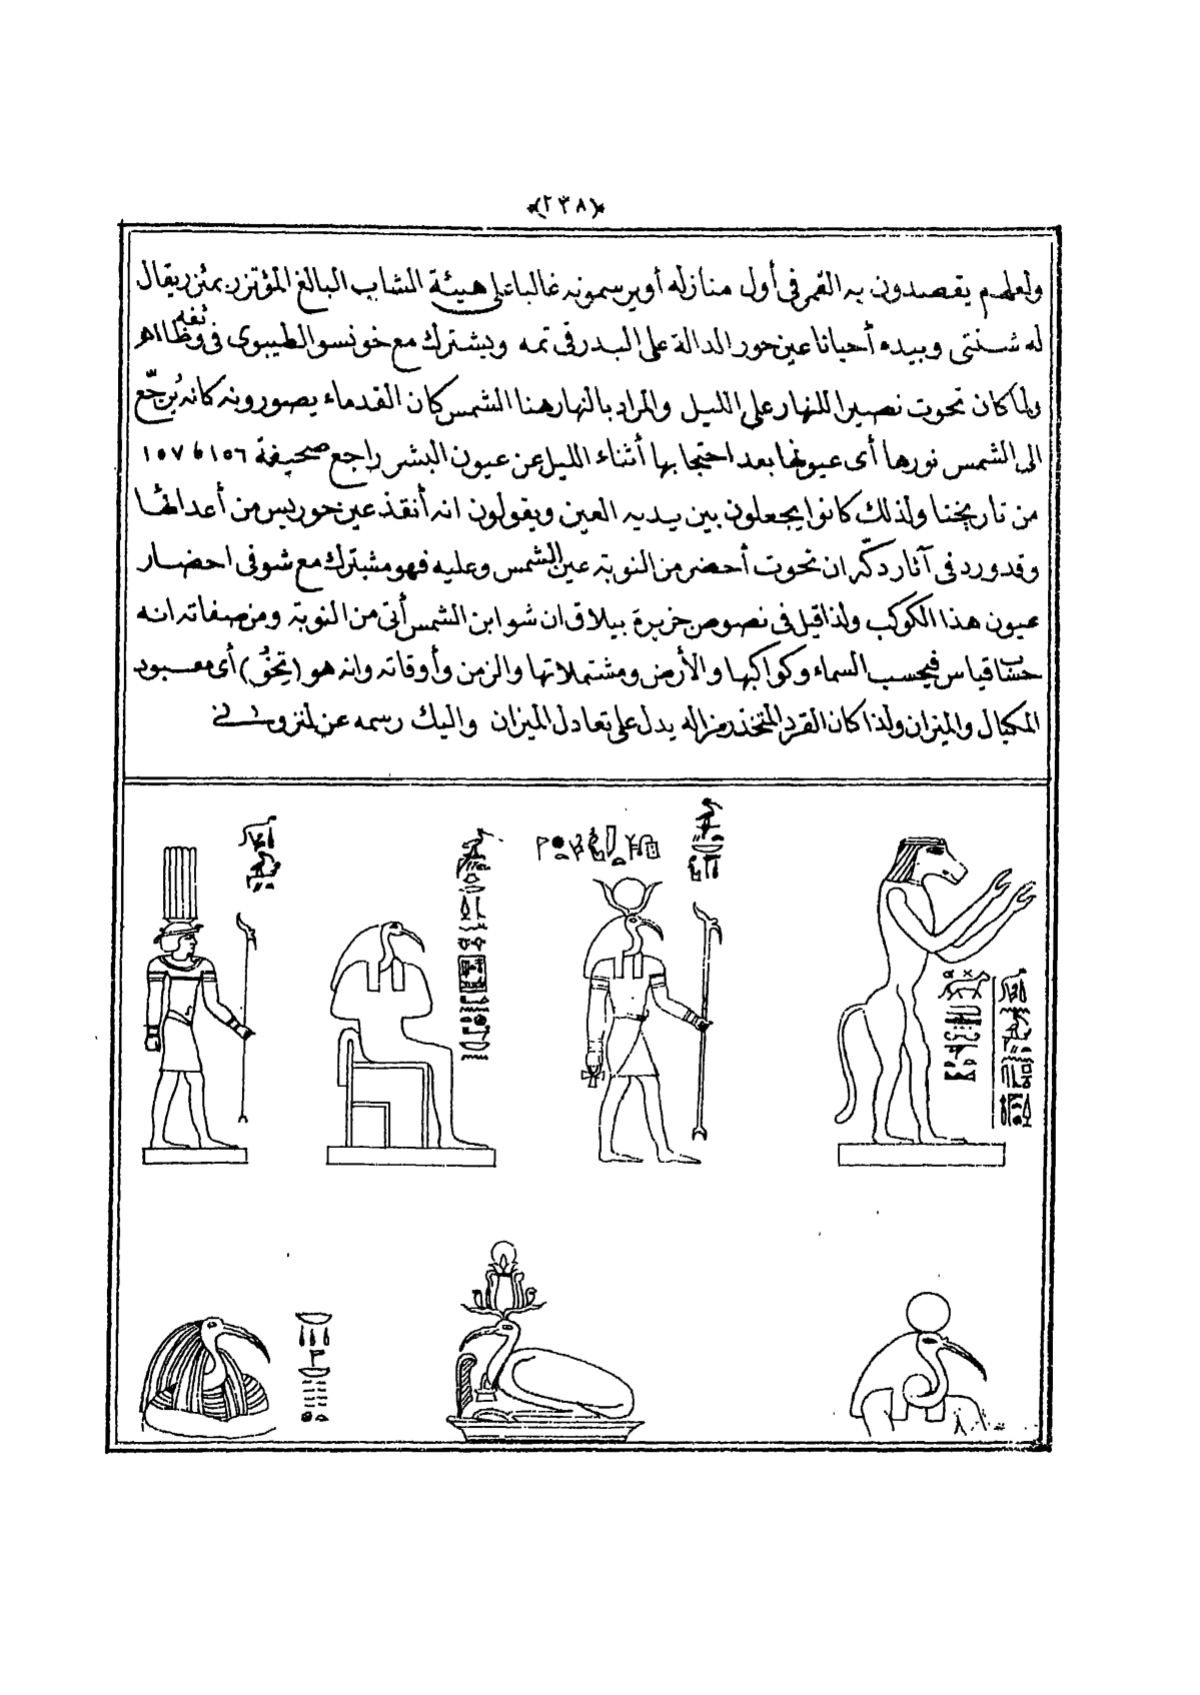 (٢٣٨)
ولعلهم يقصدون به القمر فى أول منازله أو يرسمونه غالبا على هيئة الشاب البالغ المؤتزر بمئزر يقال
له شنتى وبيده أحيانا عين حور الدالة على البدر فى تمه ويشترك مع خونسو الطيبوى فى وظائفه
ولما كان تحوت نصيرا للنهار على الليل والمراد بالنهار هنا الشمس كان القدماء يصورونه كانه يُرجّع
الى الشمس نورها أى عيونها بعد احتجابها أثناء الليل عن عيون البشر راجع صحيفة ١٥٦ و ١٥٧
من تاريخنا ولذلك كانوا يجعلون بين يديه العين ويقولون انه أنقذ عين حوريس من أعدائها
وقد ورد فى آثار دكّه ان تحوت أحضر من النوبة عين الشمس وعليه فهو مشترك مع شو فى احضار
عيون هذا الكوكب ولذا قيل فى نصوص جزيرة بيلاق ان شو ابن الشمس أتى من النوبة ومن صفاته انه
حسّاب قياس فيحسب السماء وكواكبها والأرض ومشتملاتها والزمن وأوقاته وانه هو (تِخُو) أى معبود
المكيال والميزان ولذا كان القرد المتخذ رمزا له يدل على تعادل الميزان واليك رسمه عن لنزونى